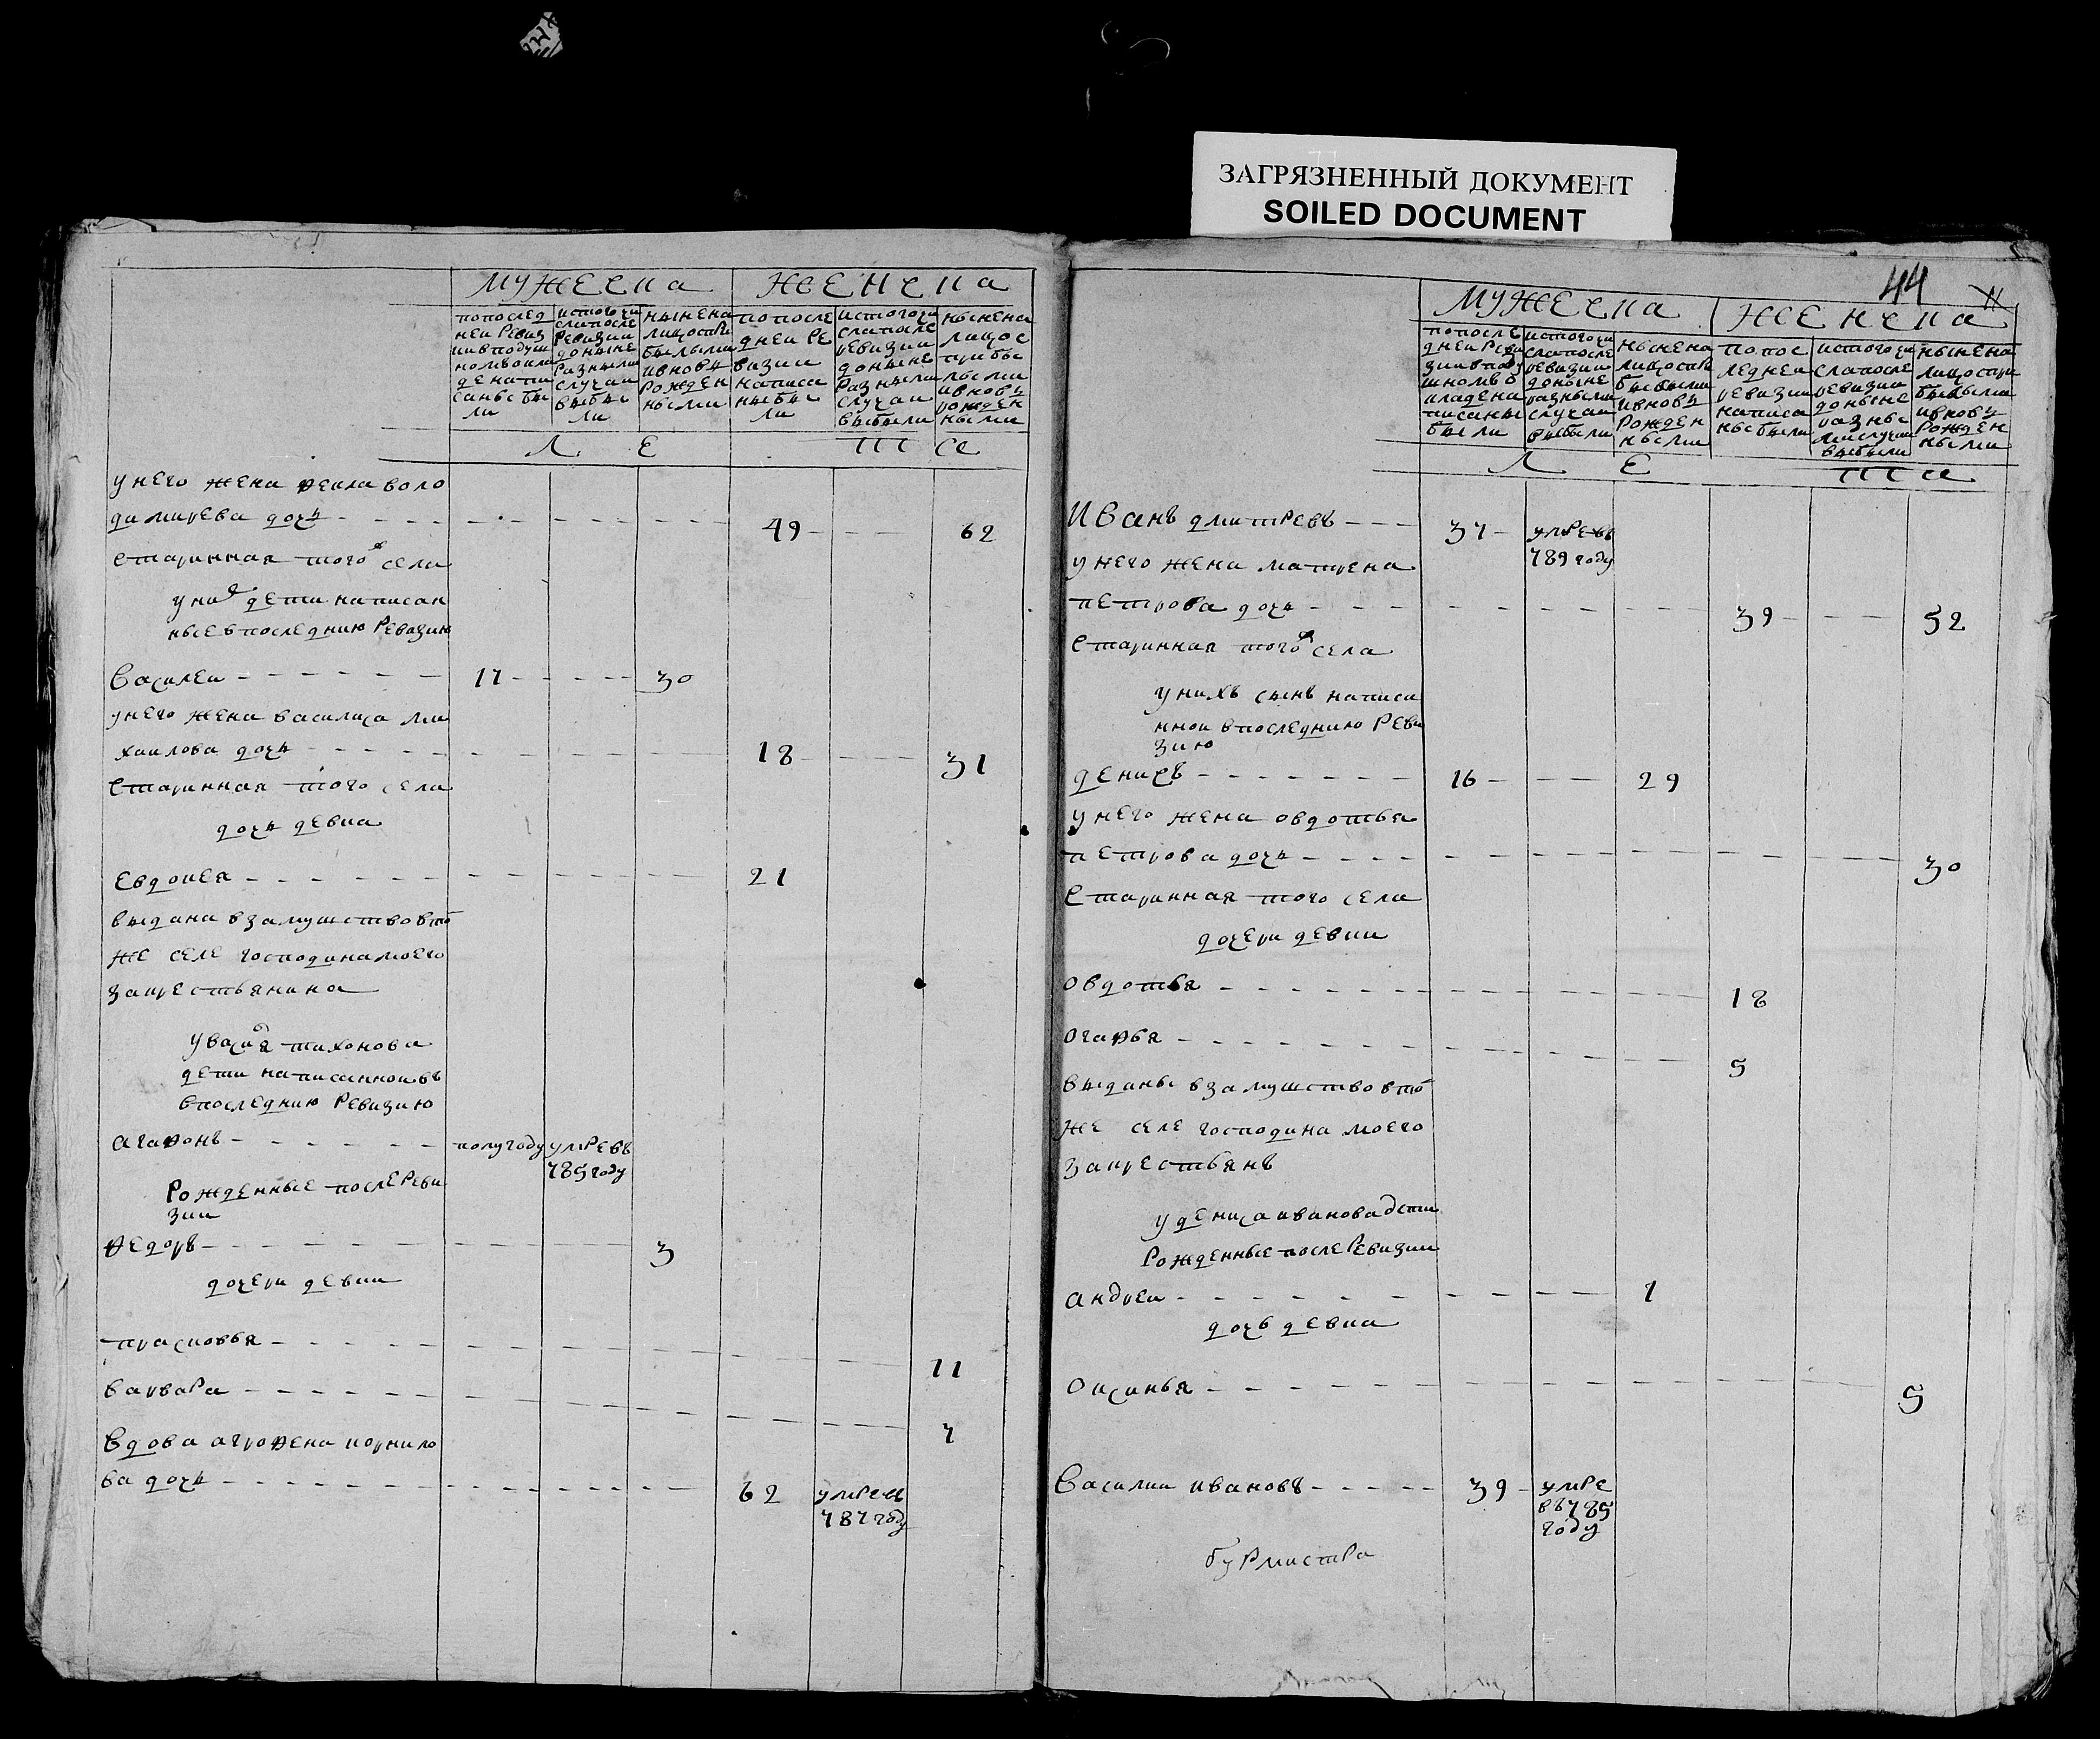 ЗАГРЯЗНЕННЫЙ ДОКУМЕНТ
SOILED DOCUMENT
мужеска
женска
попослед
ней Ревиз
ии в подуш
ном окла
де напи
саны бы
ли
ис того чи
сла после
Ревизии
до ныне
Разными
случаи
выбы
ли
ныне на
лицо с при
былыми
и вновь
Рожден
ными
по после
дней Ре
визии
написа
ны бы
ли
ис того чи
сла после
ревизии
до ныне
Разными
случаи
выбыли
ныне на
лицо с
прибы
лыми
и вновь
рожден
ными
Л Е
Т А
у него жена фекла воло
димирева дочь 49 62
старинная того ж села
у них дети написан
ные в последнию Ревизию
Василей 17 30
у него жена василиса ми
хаилова дочь 18 31
старинная того села
дочь девка
Евдокея 21
выдана в замуштво в то
же селе господина моего
за крестьянина
у василя тихонова
дети написанной въ
впоследнию Ревизию
агафонъ полугоду умре въ
785 году
Рожденные после Реви
зии
Федоръ 3
дочери девки
прасковья 11
варвара 7
Вдова аграфена корнило
ва дочь 62 умре въ
787 году
44
11
мужеска
женска
по после
дней Реви
зии в поду
шном о
кладе на
писаны
были
ис того чи
сла после
ревизии
до ныне
разными
случаи
выбыли
ныне на
лицо с при
былыми
и вновь
Рожден
ными
по пос
ледней
ревизии
написа
ны были
ис того чи
сла после
ревизии
до ныне
разны
ми случаи
выбыли
ныне на
лицо с при
былыми
и вновь
Рожден
ными
Л Е
Т А
Иванъ дмитревъ 37 умре въ
789 году
у него жена матрена
петрова дочь 39 52
старинная того ж села
у нихъ сынъ написа
нной в последнию Реви
зию
денисъ 16 29
у него жена овдотья
петрова дочь 30
старинная того села
дочери девки
овдотья 18
огафья 5
выданы в замуштво в то
же селе господина моего
за крестьянъ
у дениса иванова дети
Рожденные после Ревизии
андрей 1
дочь девка
оксинья 5
Василии ивановъ 39 умре
въ 785
году
бурмистра